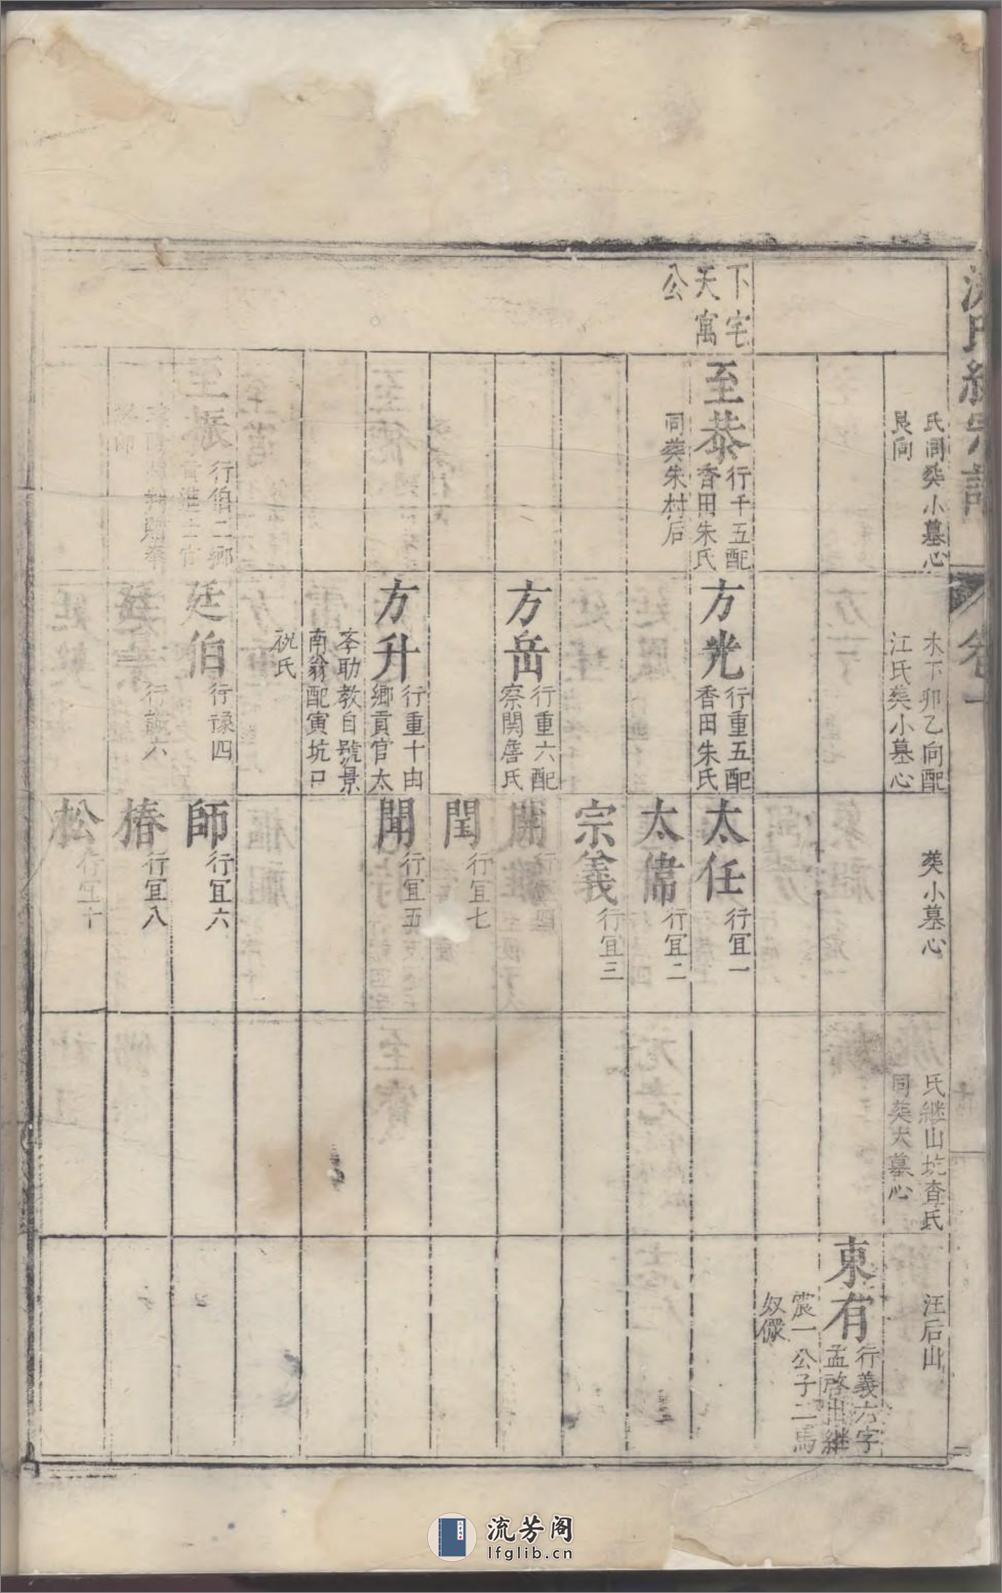 氏同葬小墓心
艮向
木下卯乙向配
江氏葬小墓心
葬小墓心
氏継山坑查氏
同葬大墓心
汪后山
東有
行義六字
孟啓出継
震一公子二馬
奴儼
下宅
天寓
公
至恭
行千五配
香田朱氏
同葬朱村后
方光
行重五配
香田朱氏
太任
行宜一
太儒
行宜二
宗義
行宜三
方岳
行重六配
察関詹氏
閏
行宜七
方升
行重十由
鄉貢官太
李助教自號景
南翁配寅坑口
祝氏
聞
行宜五
至振
行伯二鄉
廷伯
行豫四
師
行宜六
椿
行宜八
松
行宜十
流芳阁
lfglib.cn